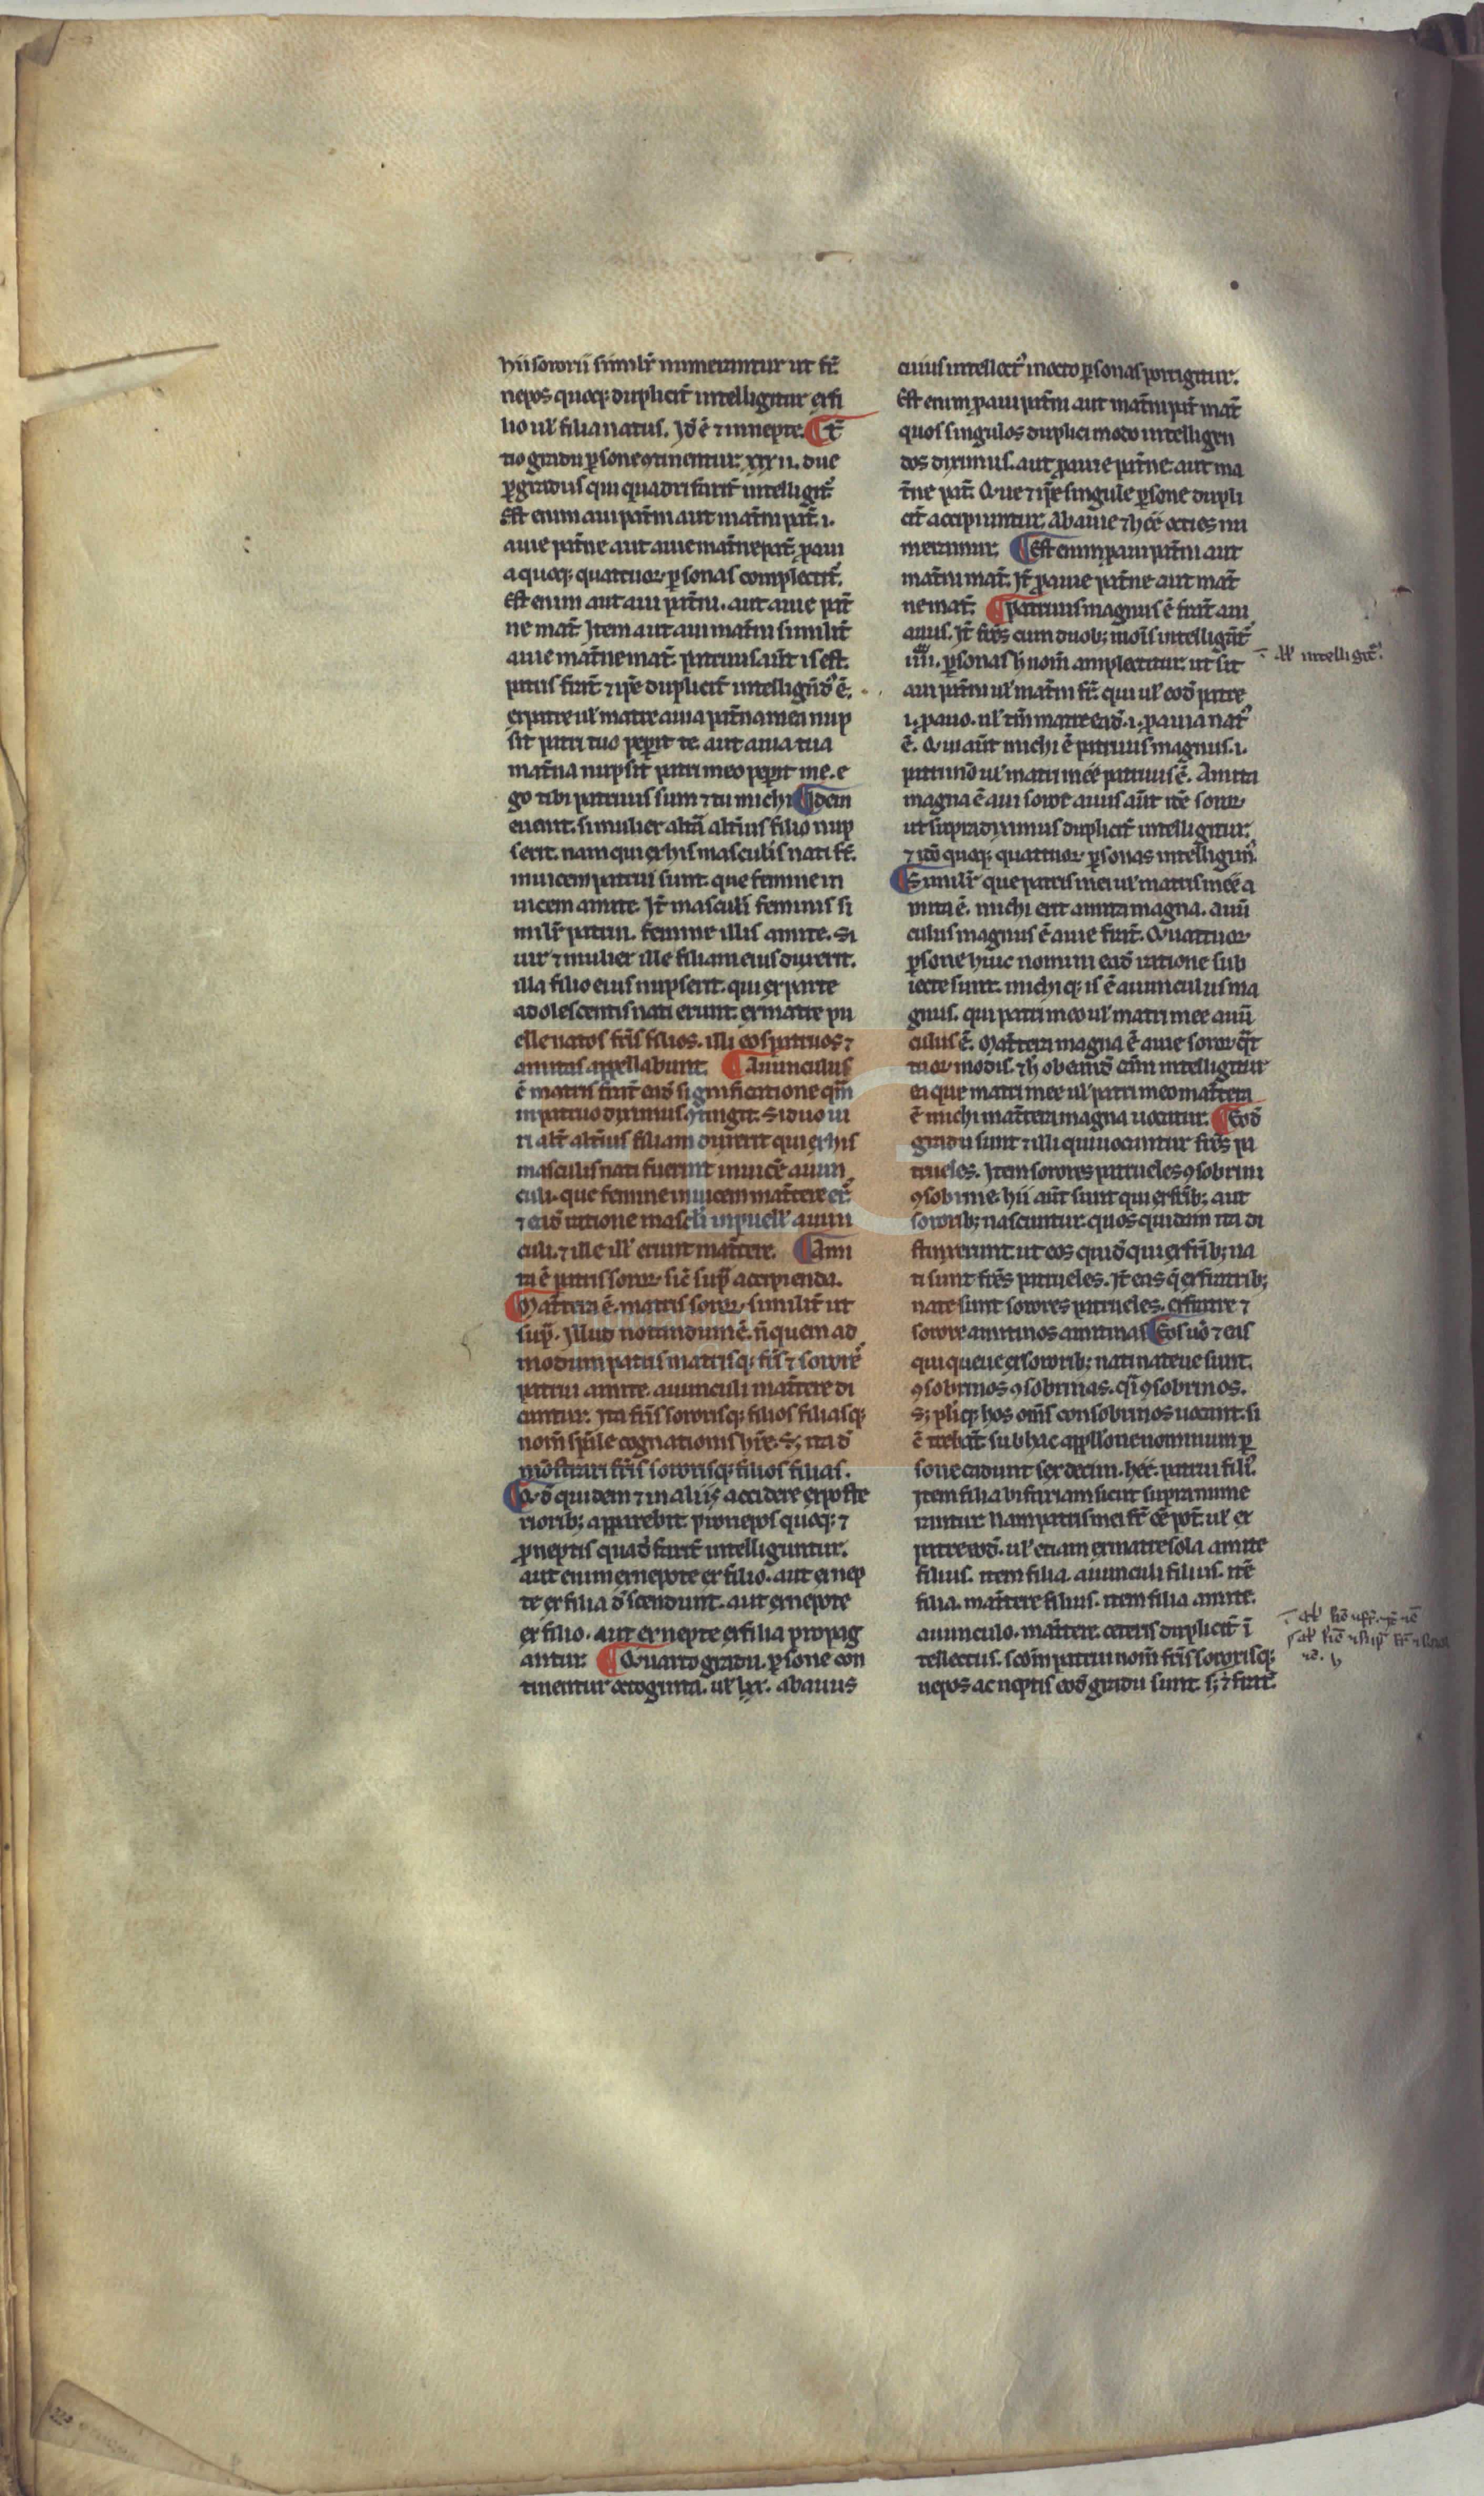 hii sororii similr̄ numerantur ut fr̄.
nepos quoq; duplicit̄ intelligitur ex fi
lio ul̓ filia natus. Id̄ ē ⁊ in nepte. ¶ T̄
tio gradu ꝑsone ꝯtinentur. xxxii. due
ꝓgradus qui quadrifarit̄ intelligit̄.
Est enim aui pat̄ni aut mat̄ni pat̄. i.
auie pat̄ne aut auie mat̄ne pat̄. ꝓaui
a quoq; quatuor ꝑsonas complectit̄.
Est enim aut aui pat̄ni. aut auie pat̄
ne mat̄. Item aut aui mat̄ni similit̄
auie mat̄ne mat̄. patruus aūt is est.
patris frat̄ ⁊ ip̄e duplicit̄ intelligēd̓ ē.
ex patre ul̓ matre auia pat̄na mea nup
sit patri tuo peperit te. aut auia tua
mat̄na nupsit patri meo peperit me. e
go tibi patruus sum ⁊ tu michi ¶ Idem
euenit. si mulier alt̄a alt̄ius filio nup
serit. nam qui ex his masculis nati sr̄.
inuicem patrui sunt. que femine in
uicem amite. It̄ masculi feminis si
milr̄ patrui. femine illis amite. Si
uir ⁊ mulier ille filiam eius duxerit.
illa filio eius nupserit. qui ex patre
adolescentis nati erunt. ex matre pu
elle natos fr̄is filios. illi eos patruos ⁊
amitas appellabunt. ¶ Auunculus
ē matris frat̄ eād significatione qm̄
in patruo diximus ꝯtingit. Si duo ui
ri alt̄ alt̄ius filiam duxerit qui ex his
masculis nati fuerint inuicē auun
culi. que femine inuicem mat̄tere er̄.
⁊ eād ratione mascl̓i in puell̓ auun
culi. ⁊ ille ill̓ erunt mat̄tere. ¶ Ami
ta ē patris soror sic̄ sup̄ accipienda.
¶ Mat̄tera ē. matris soror. similit̄ ut
sup̄. Illud notandum ē. n̄ quem ad
modum patris matrisq; fr̄s ⁊ sorores
patrui amite. auunculi mat̄tere di
cuntur. Ita fr̄is sororisq; filios filiasq;
nom̄ sp̄ale cognationis hr̄e. S; ita d̄
mōstrari fr̄is sororisq; filios filias.
¶ Qd̄ quidem ⁊ in aliis accidere ex poste
riorib; apparebit. pronepos quoq; ⁊
ꝓneptis quadrifarit̄ intelliguntur.
aut enim ex nepote ex filio. aut ex nep
te ex filia d̄scendunt. aut ex nepote
ex filio. aut ex nepte ex filia propag
antur. ¶ Quarto gradu. ꝑsone con
tinentur octoginta. ul̓ lxx. abauus
cuius intellect̓ in octo ꝑsonas porrigitur.
Est enim ꝓaui pat̄ni aut mat̄ni pat̄ mat̄
quos singulos duplici modo intelligen
dos diximus. aut ꝓauie pat̄ne. aut ma
t̄ne pat̄. Que ⁊ ip̄e singule ꝑsone dupli
cit̄ accipiuntur. Abauie ⁊ hec̄ octies nu
merantur. ¶ Est enim ꝓaui pat̄ni aut
mat̄ni mat̄. It̄ ꝓauie pat̄ne aut mat̄
ne mat̄. ¶ Patruus magnus ē frat̄ aui
auus. It̄ fr̄es cum duob; mois intelligat̄
iiii. ꝑsonas h̄ nom̄ amplectitur. ut sit
aui pat̄ni ul̓ mat̄ni fr̄. qui ul̓ eod̄ patre
i. ꝓauo. ul̓ tm̄ matre ead̄. i. ꝓauia nat̓
ē. Qui aūt michi ē patruus magnus. i.
patri mō ul̓ matri meē patruus ē. Amita
magna ē aui soror auus aūt ite soror
ut supra diximus duplicit̄ intelligitur.
⁊ iō quoq; quattuor ꝑsonas intelligim̄.
¶ Similr̄ que patris mei ul̓ matris meē a
mita ē. michi erit amita magna. auū
culus magnus ē auie frat̄. Quattuor
ꝑsone huic nomini ead̄ ratione sub
iecte sunt. michi q; is ē auunculus ma
gnus. qui patri meo ul̓ matri mee auū
culus ē. Mat̄tera magna ē auie soror q̄t
tuor modis. ⁊ h̄ ob eamd̄ cām intelligitur
ea que matri mee ul̓ patri meo mat̄tera
ē michi mat̄tera magna uocatur. ¶ Eod̄
gradu sunt ⁊ illi qui uocantur fr̄es pa
trueles. Item sorores patrueles ꝯsobrini
ꝯsobrine. hii aūt sunt qui ex fr̄ib; aut
sororib; nascuntur. quos quidam ita di
stinxerunt ut eos quid̄ qui ex fr̄ib; na
ti sunt fr̄es patrueles. It̄ eas q̄ ex fratrib;
nate sunt sorores patrueles. ex fratre ⁊
sorore amitinos amitinas ¶ Eos uō ⁊ eas
qui queue ex sororib; nati nateue sunt.
ꝯsobrinos ꝯsobrinas. qi ꝯsobrinos.
S; pliq; hos om̄s consobrinos uocant. si
ē trebat̄. sub hac appllone nominum ꝑ
sone cadunt sexdecim. hec̄. patrui fili̓.
Item filia bifariam sicut supra nume
rantur. Nam patris mei fr̄ eē pot̄. ul̓ ex
patre eod̄. ul̓ etiam ex matre sola amite
filius. item filia. auunculi filius. itē
filia. mat̄tere filius. item filia amite.
auunculo. mat̄tere. ceteris duplicit̄ ī
tellectus. scd̄m patrui nom̄ fr̄is sororisq;
nepos ac neptis eod̄ gradu sunt. s; ⁊ frat̄
intelligit̄.